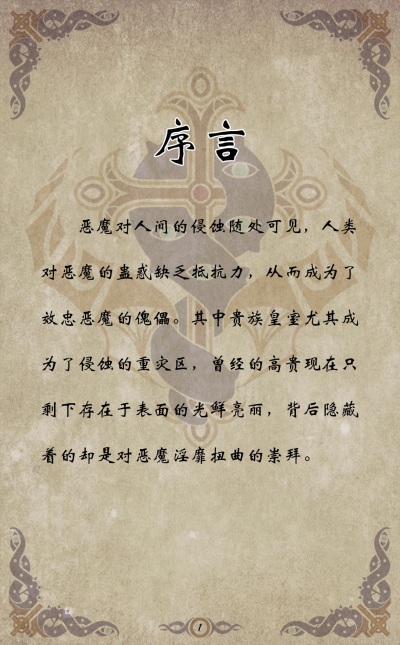 序言
恶魔对人间的侵蚀随处可见，人类
对恶魔的蛊惑缺乏抵抗力，从而成为了
效忠恶魔的傀儡。其中贵族皇室尤其成
为了侵蚀的重灾区，曾经的高贵现在只
剩下存在于表面的光鲜亮丽，背后隐藏
着的却是对恶魔淫靡扭曲的崇拜。
1